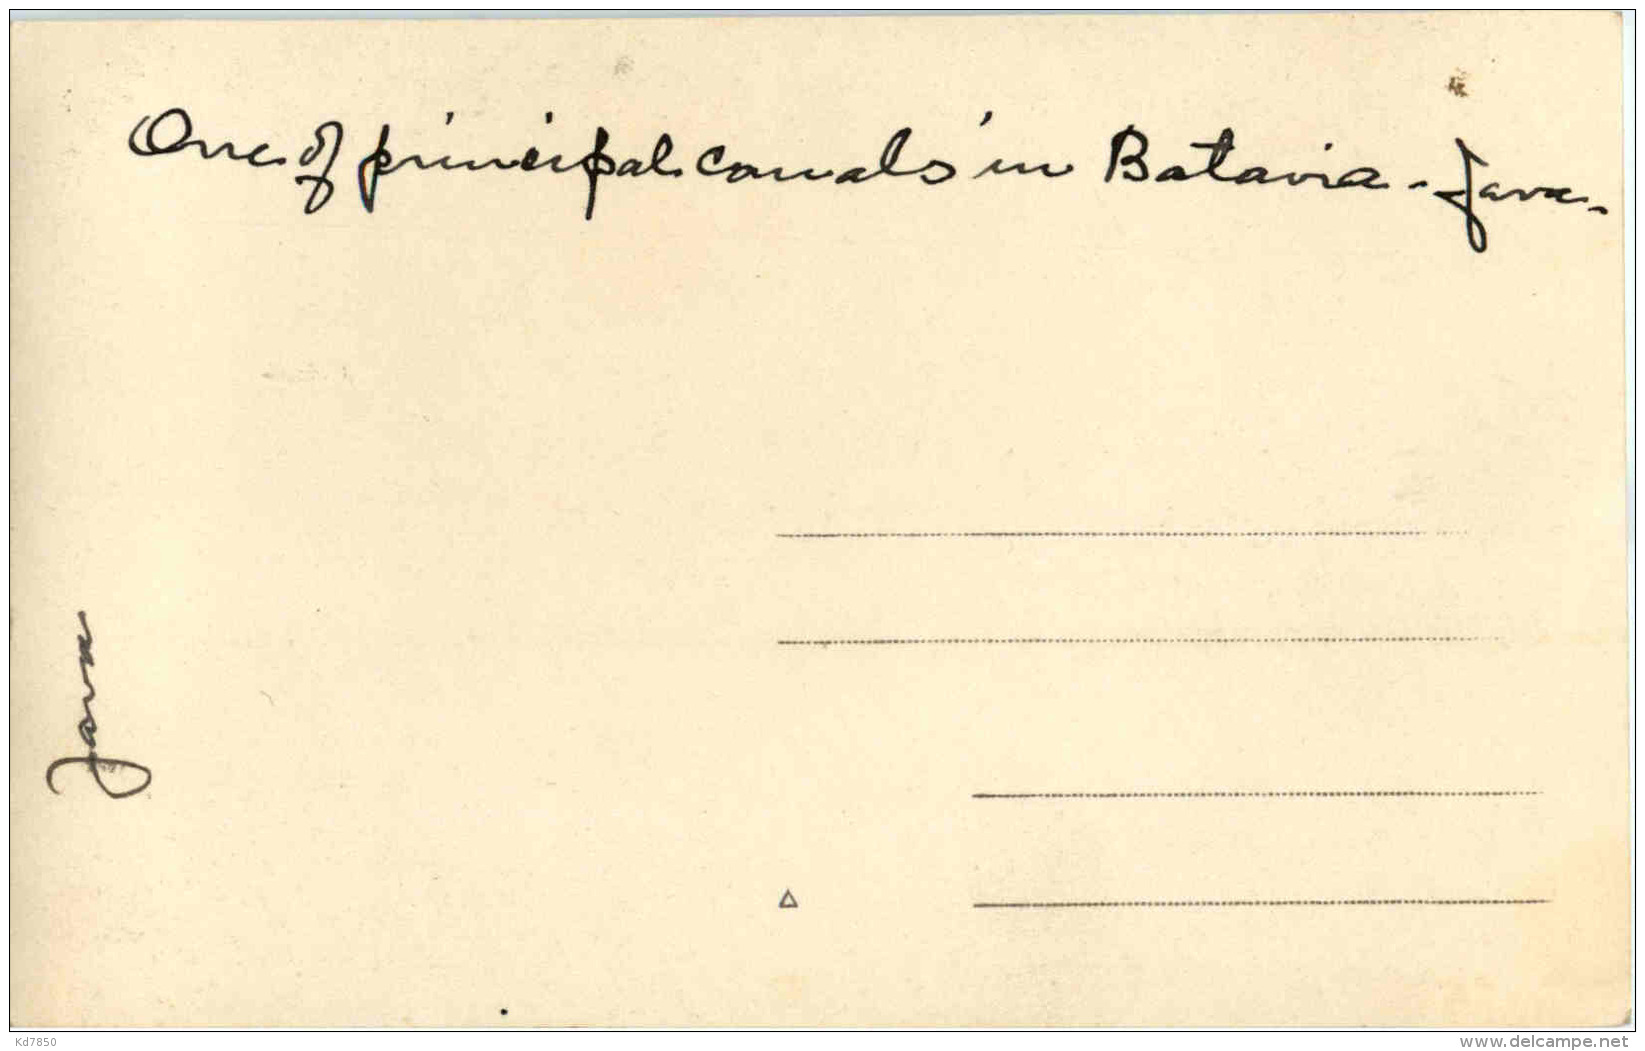 One of principal canals in Batavia - Java -
Java
Kd7850
delcampe.net